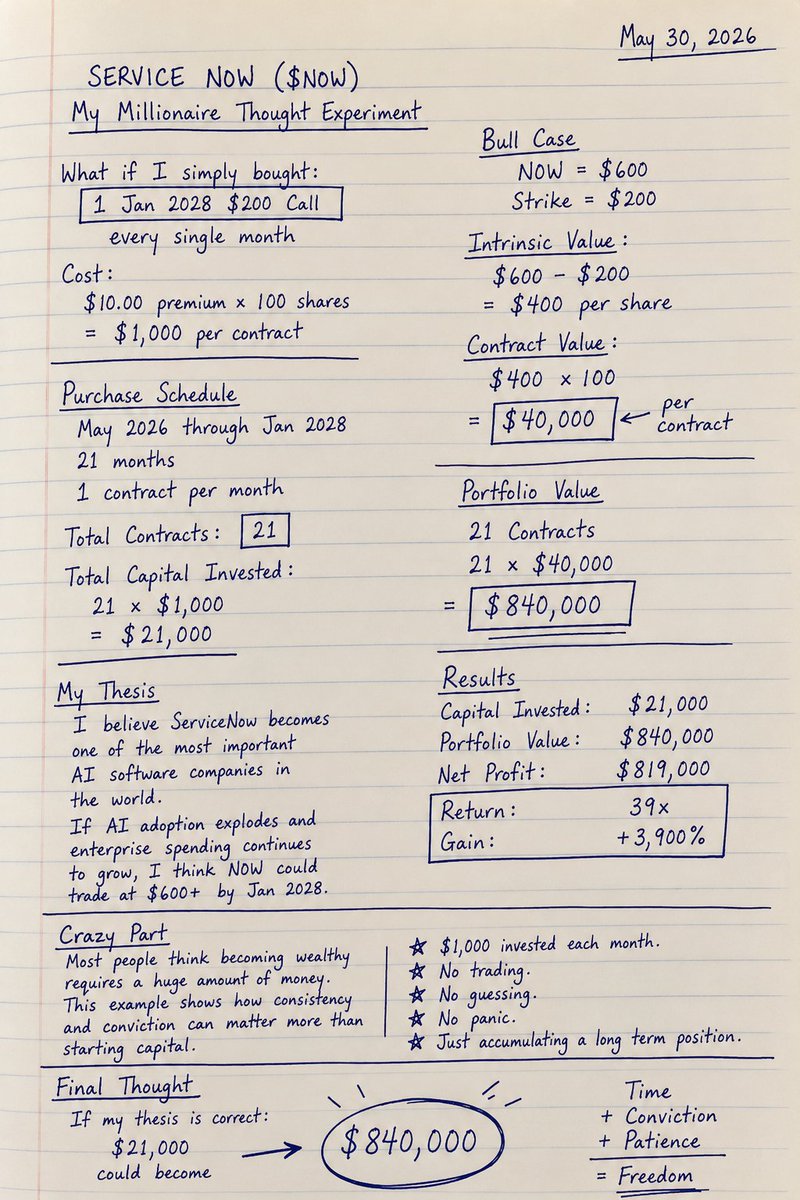 May 30, 2026
SERVICE NOW ($NOW)
My Millionaire Thought Experiment
What if I simply bought:
1 Jan 2028 $200 Call
every single month
Cost:
$10.00 premium × 100 shares
= $1,000 per contract
Purchase Schedule
May 2026 through Jan 2028
21 months
1 contract per month
Total Contracts: 21
Total Capital Invested:
21 × $1,000
= $21,000
My Thesis
I believe ServiceNow becomes
one of the most important
AI software companies in
the world.
If AI adoption explodes and
enterprise spending continues
to grow, I think NOW could
trade at $600+ by Jan 2028.
Bull Case
NOW = $600
Strike = $200
Intrinsic Value:
$600 - $200
= $400 per share
Contract Value:
$400 × 100
= $40,000 ← per
contract
Portfolio Value
21 Contracts
21 × $40,000
= $840,000
Results
Capital Invested: $21,000
Portfolio Value: $840,000
Net Profit: $819,000
Return: 39×
Gain: +3,900%
Crazy Part
Most people think becoming wealthy
requires a huge amount of money.
This example shows how consistency
and conviction can matter more than
starting capital.
☆ $1,000 invested each month.
☆ No trading.
☆ No guessing.
☆ No panic.
☆ Just accumulating a long term position.
Final Thought
If my thesis is correct:
$21,000
could become
→ $840,000
Time
+ Conviction
+ Patience
= Freedom